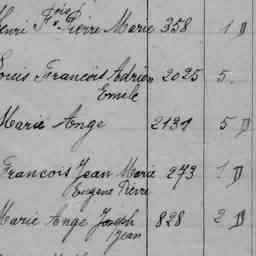 Henri Fois Pierre Marie 358 1 D
Louis Francois Adrien 2025 5
Emile
Marie Ange 2131 5 D
Francois Jean Marie 273 1 D
Eugene Pierre
Marie Ange Joseph 828 2 D
Jean